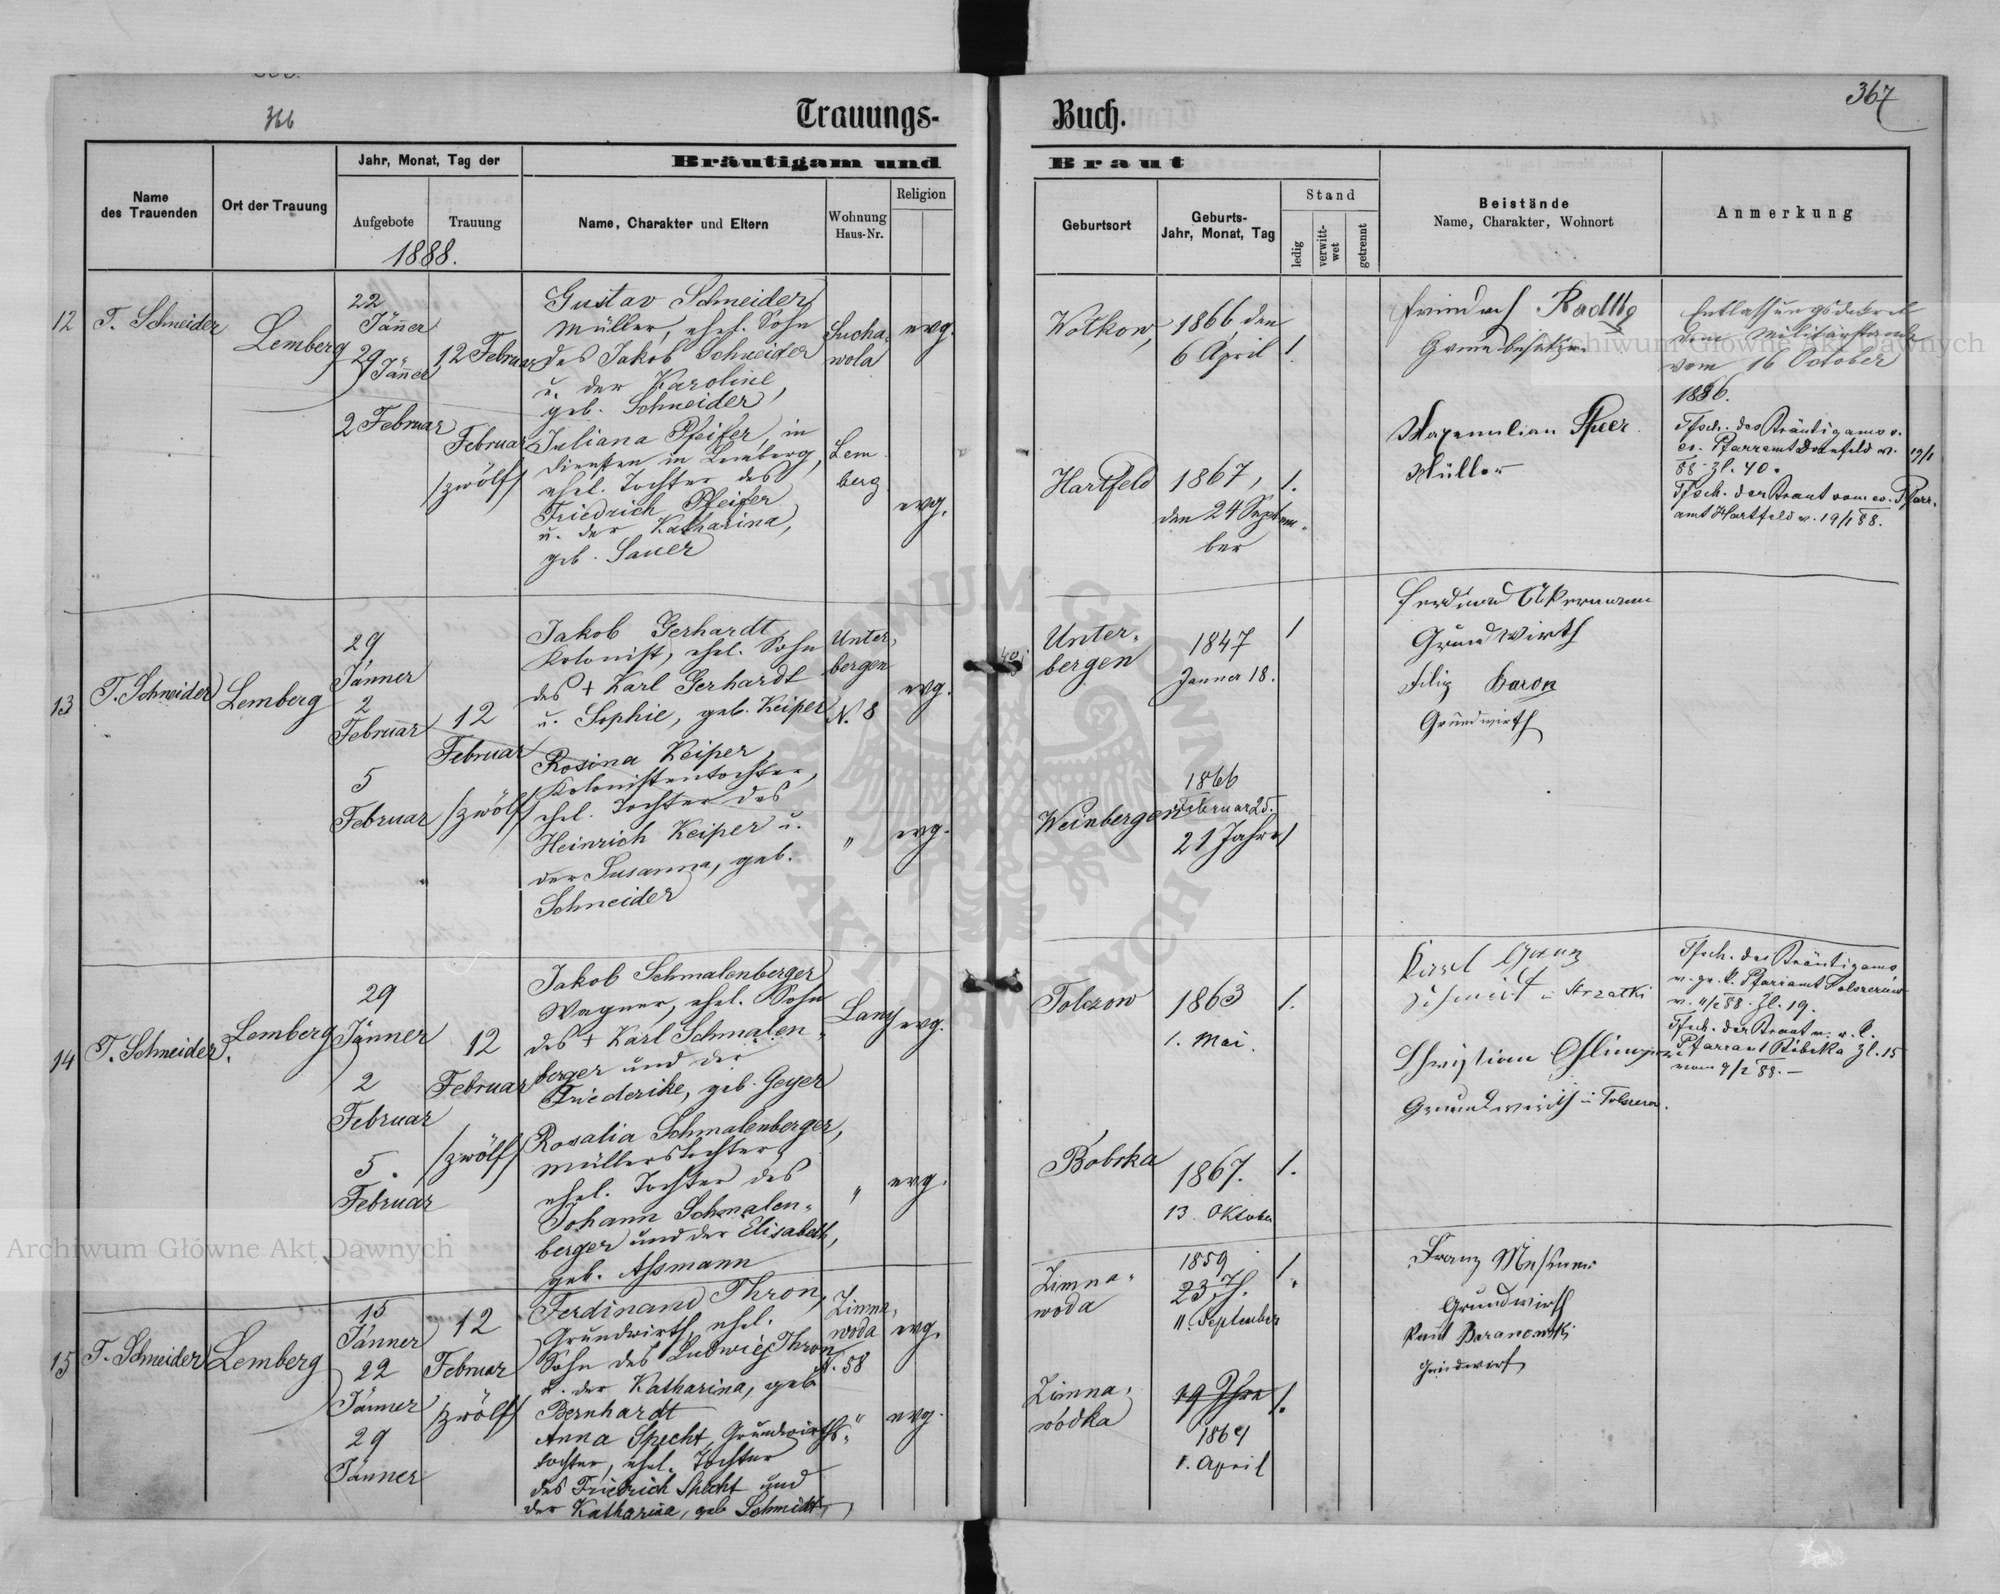 366
Trauungs-
Buch.
367
Name
des Trauenden
Ort der Trauung
Jahr, Monat, Tag der
Aufgebote
Trauung
1888.
Bräutigam und
Name, Charakter und Eltern
Wohnung
Haus-Nr.
Religion
Braut
Geburtsort
Geburts-
Jahr, Monat, Tag
Stand
ledig
verwitt-
wet
getrennt
Beistände
Name, Charakter, Wohnort
Anmerkung
12
T. Schneider
Lemberg
22
Jänner
29
Jänner
2 Februar
12 Februar
Februar
/zwölf/
Gustav Schneider,
Müller, ehel. Sohn
des Jakob Schneider
u. der Karoline,
geb. Schneider,
Juliana Pfeifer, in
Diensten in Lemberg,
ehel. Tochter des
Friedrich Pfeifer
u. der Katharina,
geb. Sauer
Sucha-
wola
Lem
berg
evg.
evg.
Wolkow,
1866 den
6 April
1.
Hartfeld
1867,
den 24 Septem-
ber
1.
Maxemilian
Müller
vom 16 October
1886.
Tfsch. des Bräutigams v.
ev. Pfarramt Dornfeld v. 19/1
88 Zl. 40.
Tfsch. der Braut vom ev. Pfarr-
amt Hartfeld v. 19/1 88.
13
T. Schneider
Lemberg
29
Jänner
2
Februar
5
Februar
12
Februar
/zwölf/
Jakob Gerhardt,
Kolonist, ehel. Sohn
des + Karl Gerhardt
u. Sophie, geb. Keiper
Rosina Keiper,
Kolonistentochter,
ehel. Tochter des
Heinrich Keiper u.
der Susanna, geb.
Schneider
Unter-
bergen
N. 8
"
evg.
evg.
Unter-
bergen
1847
Janner 18.
1
Weinbergen
1866
Februar 25.
21 Jahre
1
Ferdinand Akermann
Grundwirth
Filip Baron
Grundwirth
14
T. Schneider
Lemberg
29
Jänner
2
Februar
5.
Februar
12
Februar
/zwölf/
Jakob Schmalenberger
Wagner, ehel. Sohn
des + Karl Schmalen-
berger und der
Friederike, geb. Geyer
Rosalia Schmalenberger,
Müllerstochter,
ehel. Tochter des
Johann Schmalen-
berger und der Elisabeth,
geb. Assmann
Lany
"
evg.
evg.
Tolszow
1863
1. Mai.
1.
Bobrka
1867.
13. Oktober
1.
Grundwirth
Tfsch. des Bräutigams
v. 11/2 88. Zl. 19.
Pfarramt Bibrka Zl. 15
vom 9/2 88. —
15
T. Schneider
Lemberg
15
Jänner
22
Jänner
29
Jänner
12
Februar
/zwölf/
Ferdinand Thron,
Grundwirth, ehel.
Sohn des Ludwig Thron
u. der Katharina, geb
Bernhardt
Anna Specht, Grundwirths-
tochter, ehel. Tochter
des Friedrich Specht und
der Katharina, geb Schmidt,
Zimna-
woda
N. 58
"
evg.
evg.
Zimna-
woda
1859
11. September
1.
Zimna-
wodka
19 Jhre
1869
1. April
1.
Franz
Grundwirth
Paul Baranowski
Grundwirt
Archiwum Główne Akt Dawnych
Archiwum Główne Akt Dawnych